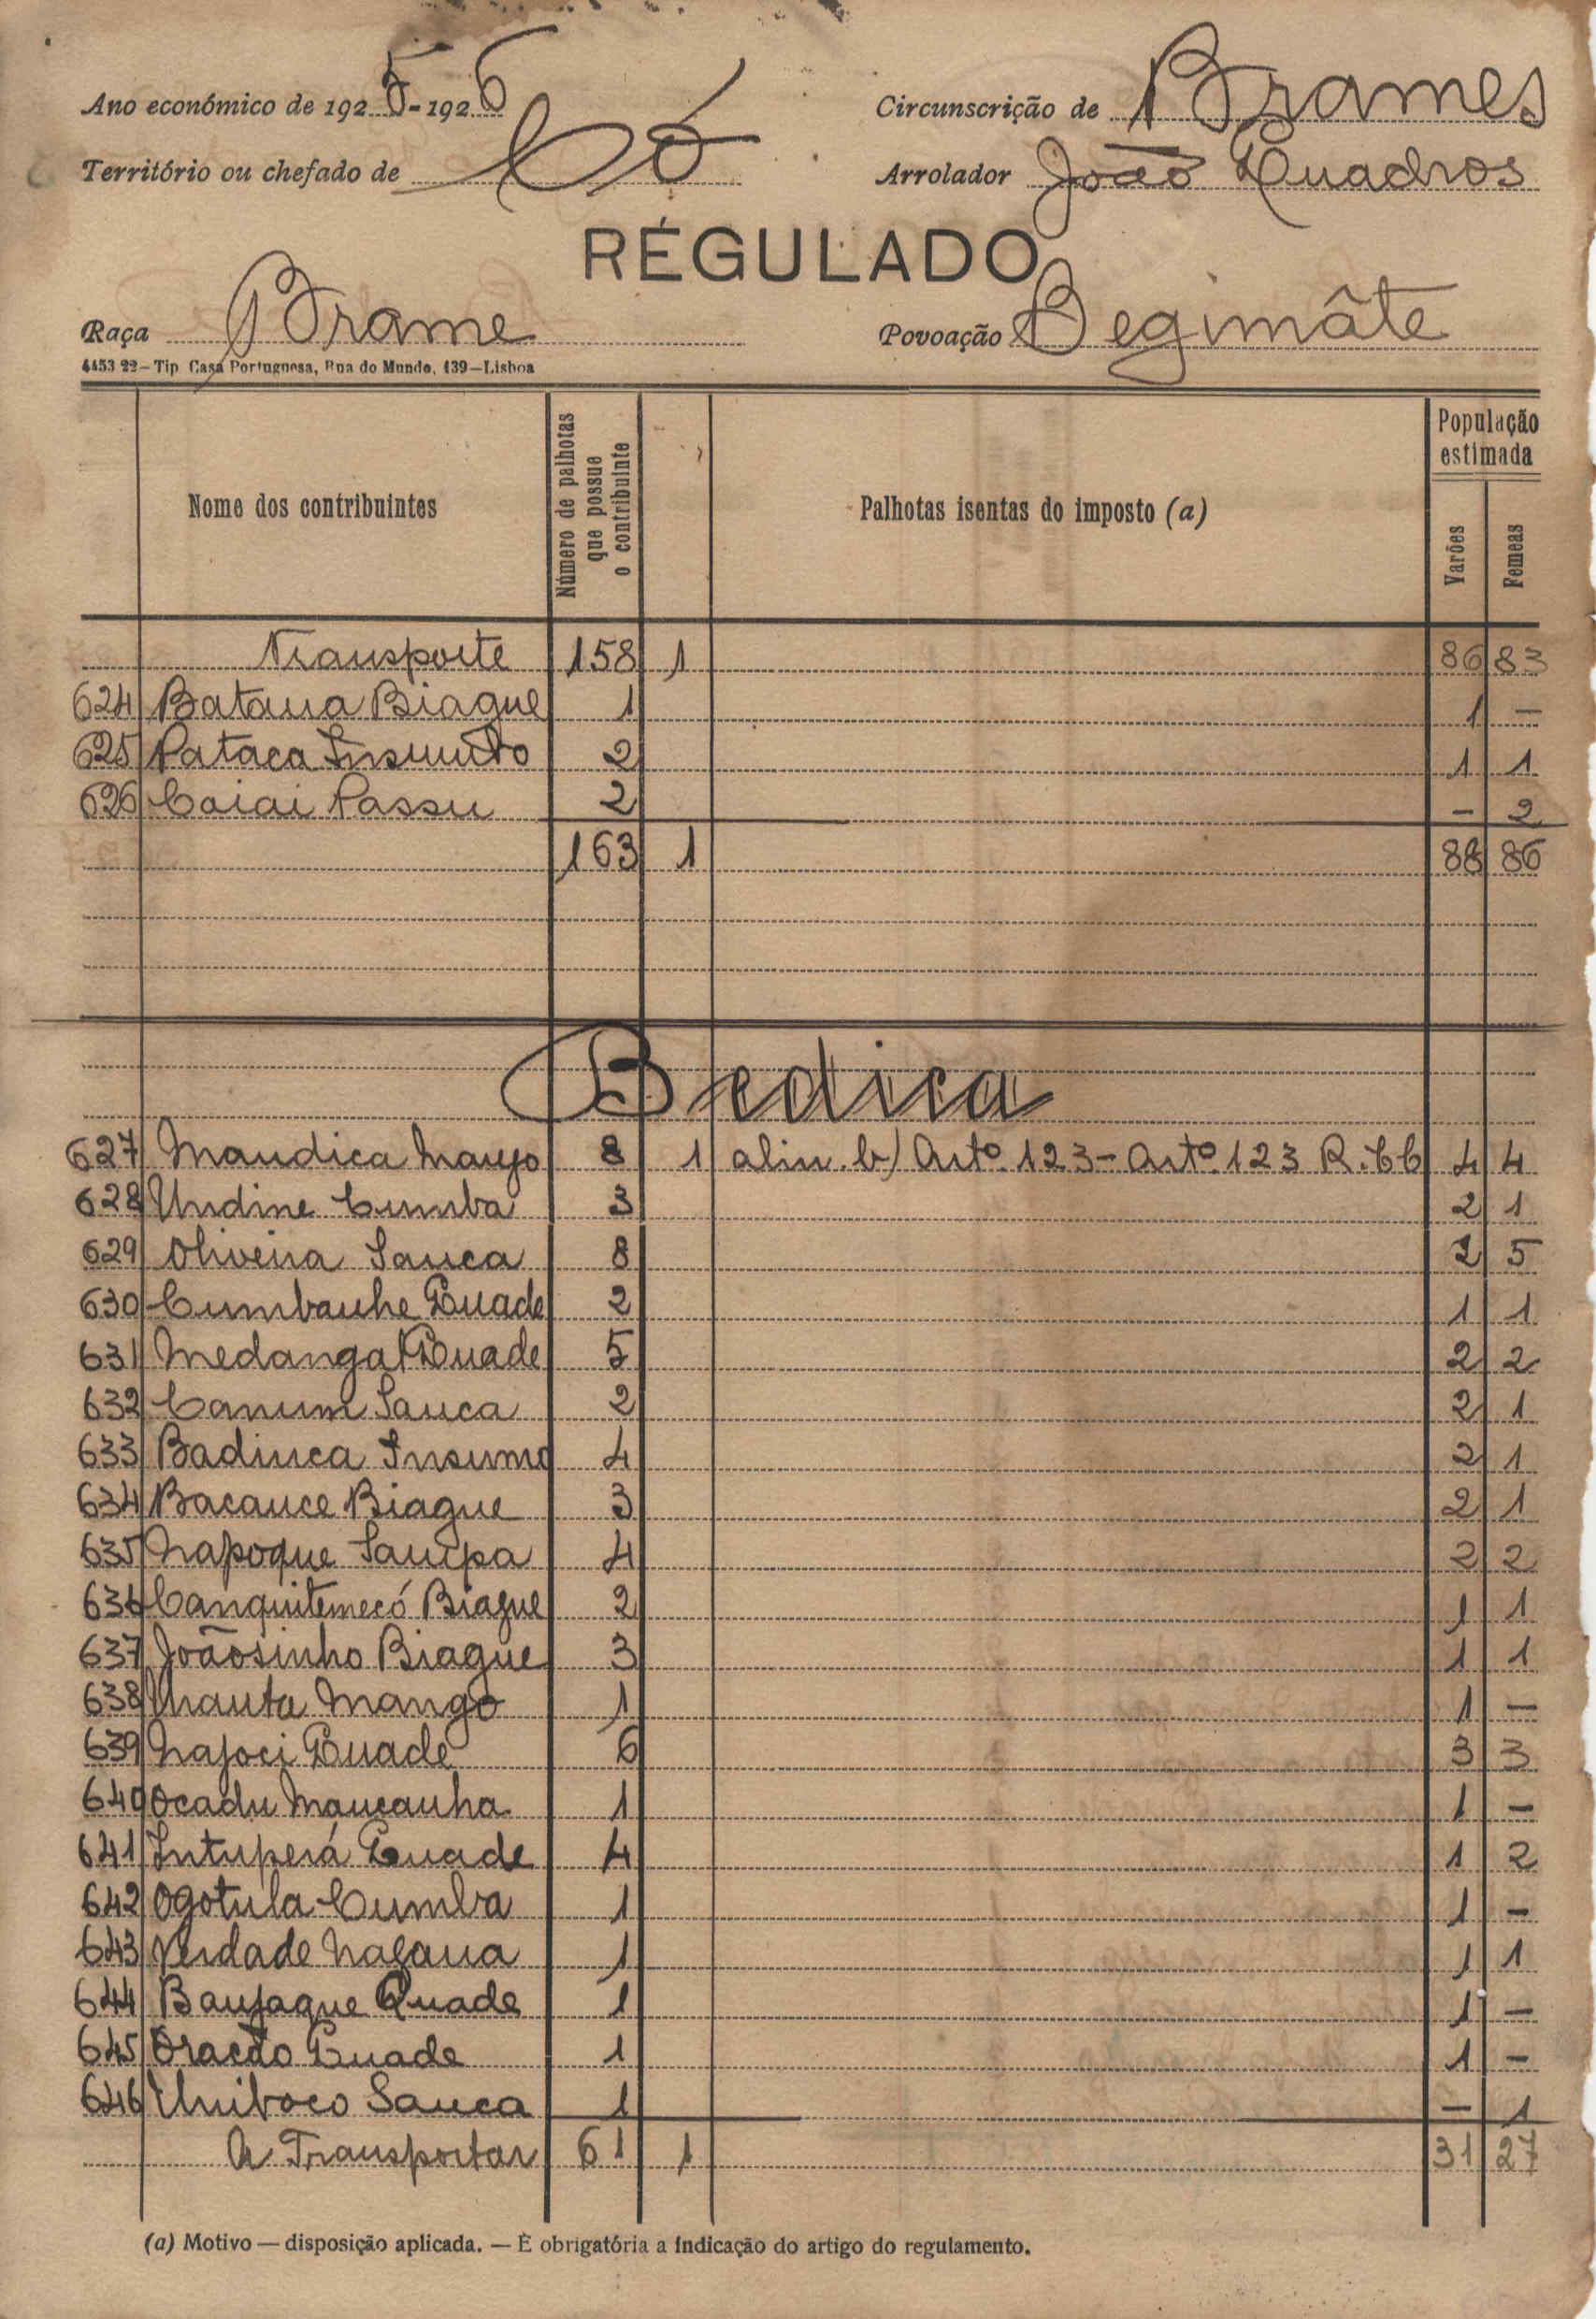 Ano económico de 1925-1926
Circunscrição de Brames
Território ou chefado de Có
Arrolador João Quadros
RÉGULADO
Raça Brame
Povoação Begimâte
4453 22—Tip Casa Portuguesa, Rua do Mundo, 139—Lisboa
Nome dos contribuintes
Número de palhotas que possue o contribuinte
Palhotas isentas do imposto (a)
População estimada
Varões
Femeas
Transporte 158 1 86 83
624 Bataua Biague 1 1 —
625 Pataca 2 1 1
626 Caiai Passu 2 — 2
163 1 88 86
Bedica
627 Mandica 8 1 alin. b) Artº 123 - Artº 123 R. CC 4 4
628 Undine Cumba 3 2 1
629 Oliveira Sauca 8 2 5
630 Cumbanhe Quade 2 1 1
631 Medanga Quade 5 2 2
632 Canum Sauca 2 2 1
633 Badinca Insumo 4 2 1
634 Bacauce Biague 3 2 1
635 Napoque Saupa 4 2 2
636 Canquitemecó Biague 2 1 1
637 Joãosinho Biague 3 1 1
638 Mango 1 1 —
639 Najoci Quade 6 3 3
640 Ocadu Mancanha 1 1 —
641 Intuperá Quade 4 1 2
642 Ogotula Cumba 1 1 —
643 Verdade Nafaua 1 1 1
644 Banjaque Quade 1 1 —
645 Oracão Quade 1 1 —
646 Uniboco Sauca 1 — 1
A Transportar 61 1 31 27
(a) Motivo — disposição aplicada. — É obrigatória a indicação do artigo do regulamento.